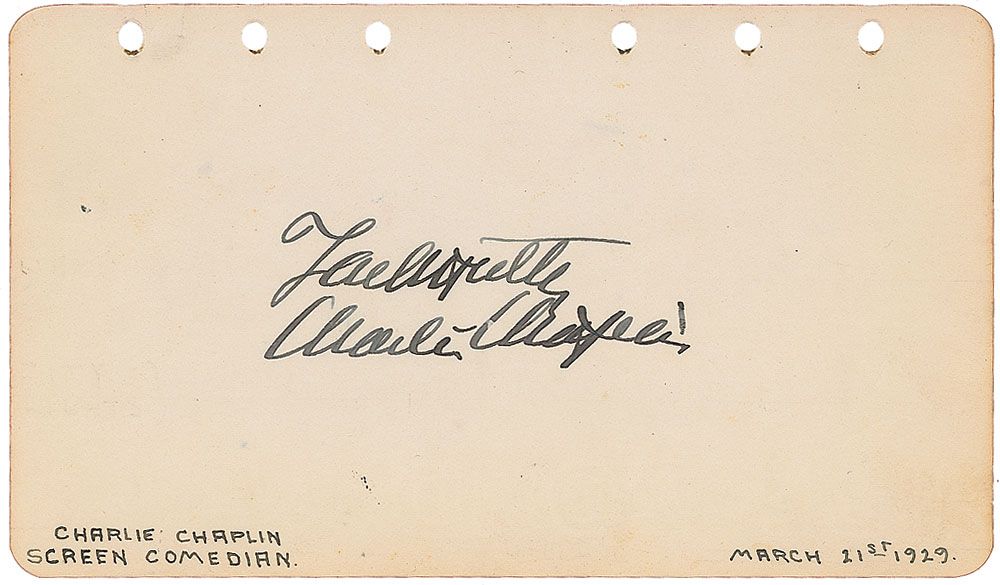 Faithfully
Charlie Chaplin
CHARLIE CHAPLIN
SCREEN COMEDIAN.
MARCH 21ST 1929.